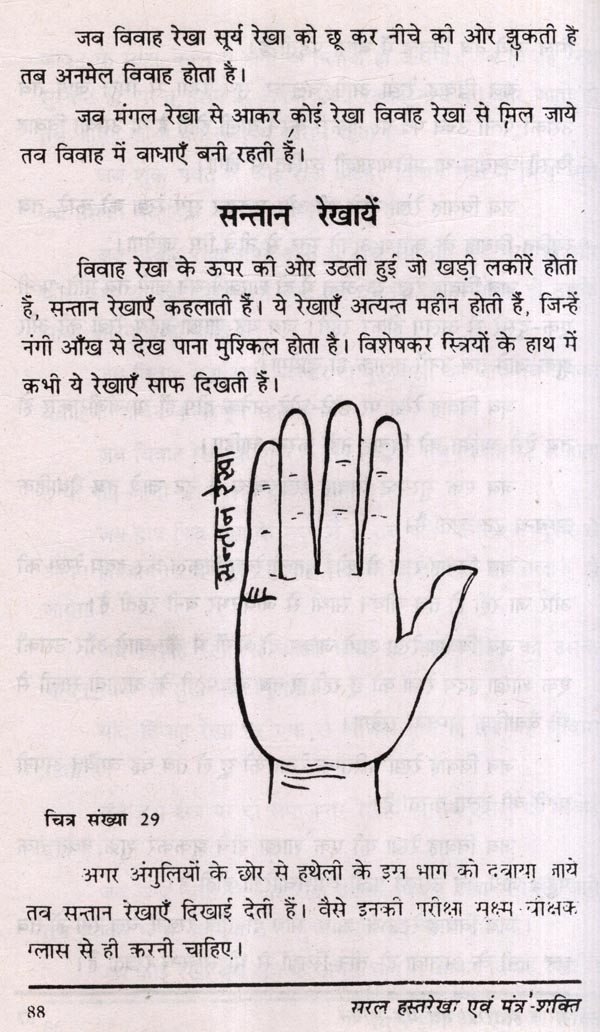 जब विवाह रेखा सूर्य रेखा को छू कर नीचे की ओर झुकती है
तब अनमेल विवाह होता है।
जब मंगल रेखा से आकर कोई रेखा विवाह रेखा से मिल जाये
तव विवाह में वाधाएँ बनी रहती हैं।
सन्तान रेखायें
विवाह रेखा के ऊपर की ओर उठती हुई जो खड़ी लकीरें होती
हैं, सन्तान रेखाएँ कहलाती हैं। ये रेखाएँ अत्यन्त महीन होती हैं, जिन्हें
नंगी आँख से देख पाना मुश्किल होता है। विशेषकर स्त्रियों के हाथ में
कभी ये रेखाएँ साफ दिखती हैं।
सन्तान रेखा
चित्र संख्या 29
अगर अंगुलियों के छोर से हथेली के इस भाग को दबाया जाये
तव सन्तान रेखाएँ दिखाई देती हैं। वैसे इनकी परीक्षा सूक्ष्म वीक्षक
ग्लास से ही करनी चाहिए।
88
सरल हस्तरेखा एवं पंत्र शक्ति